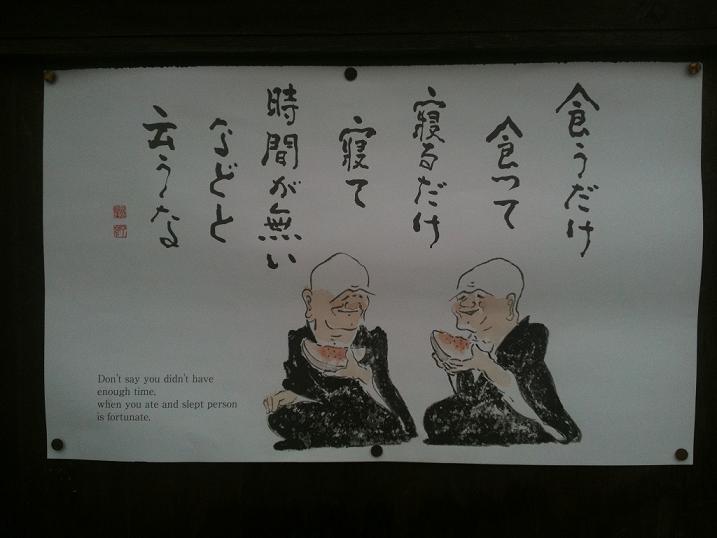 食うだけ
食って
寝るだけ
寝て
時間が無い
などと
云うな
Don't say you didn't have
enough time,
when you ate and slept person
is fortunate.